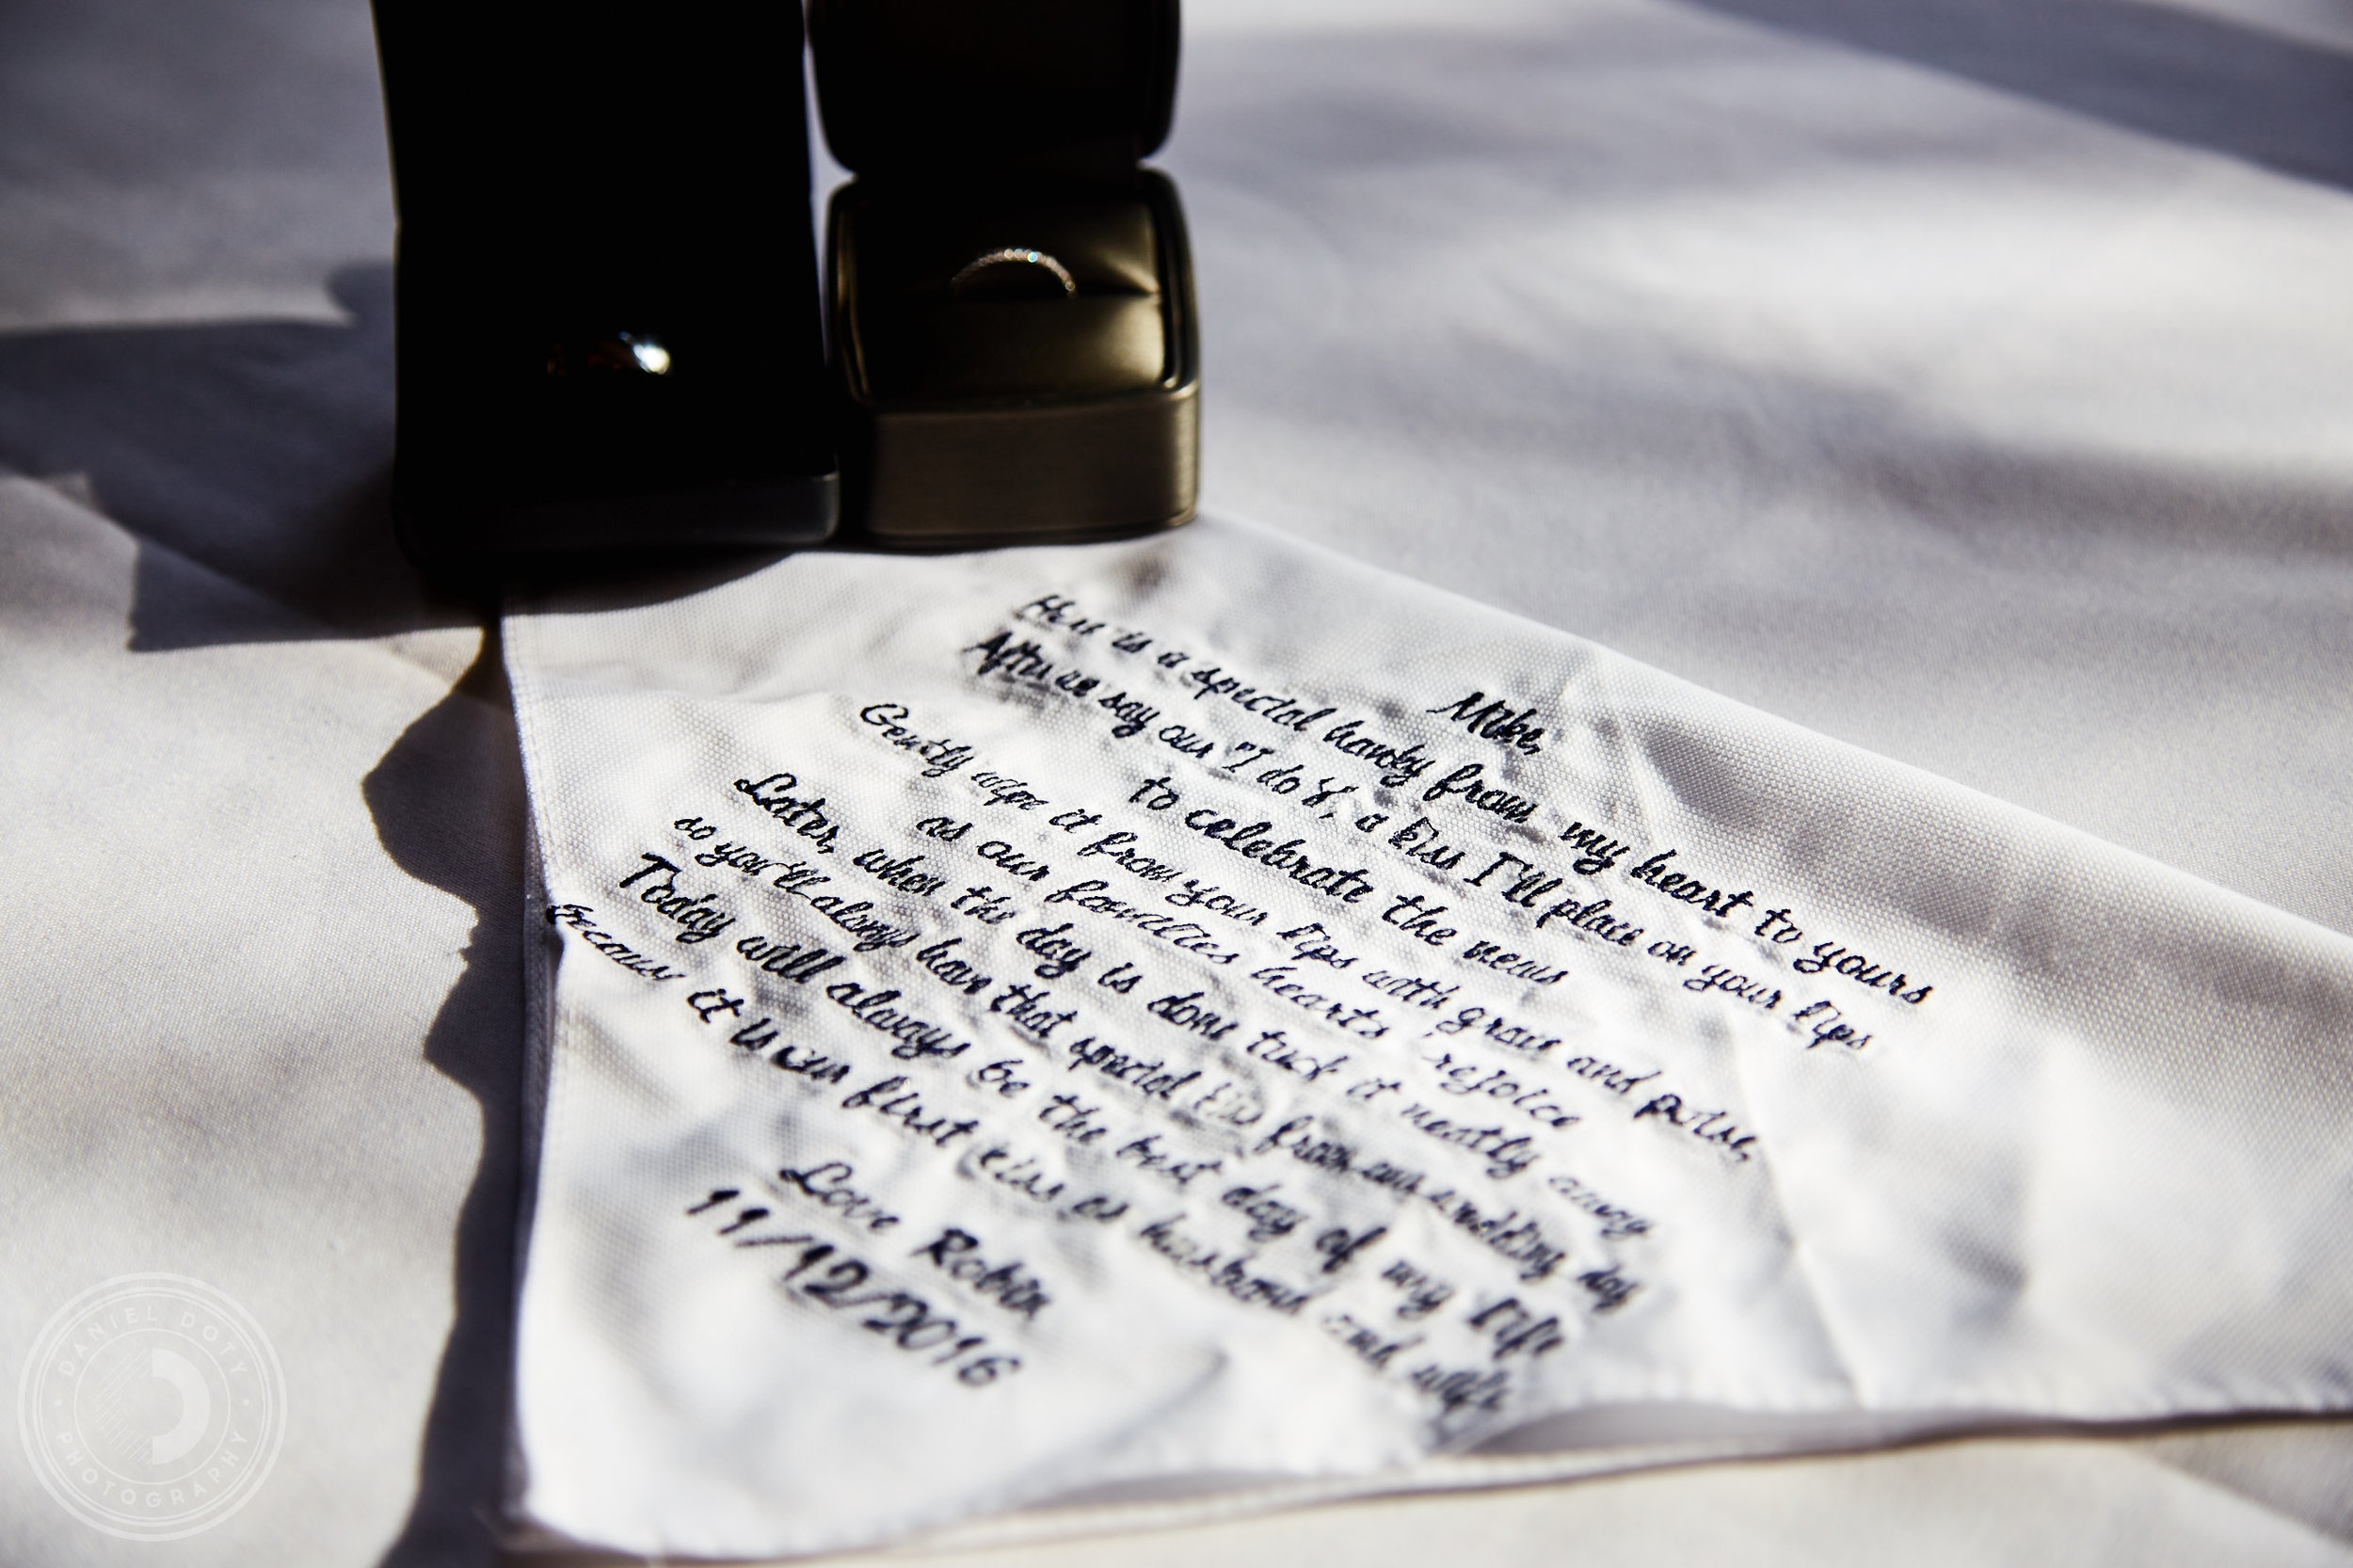 Mike,
Here is a special hanky from my heart to yours
After we say our "I do's", a kiss I'll place on your lips
to celebrate the news
Gently wipe it from your lips with grace and poise,
as our families hearts rejoice
Later, when the day is done tuck it neatly away
so you'll always have that special kiss from our wedding day
Today will always be the best day of my life
Because it is our first kiss as husband and wife
Love Robin
11/12/2016
DANIEL DOTY
PHOTOGRAPHY